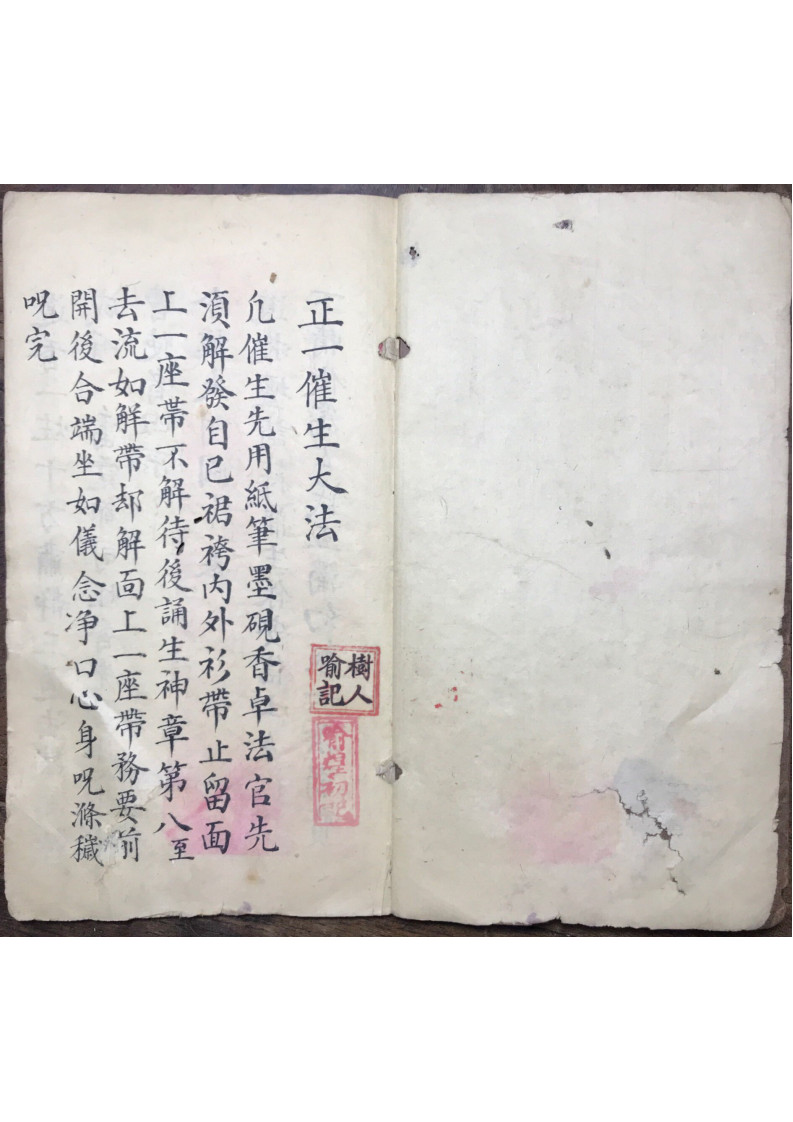 正一催生大法
樹人
喻記
凢催生先用紙筆墨硯香卓法官先
湏解發自已裾袴内外衫帶止留面
上一座帶不解待後誦生神章第八至
去流如解帶却解面上一座帶務要前
開後合端坐如儀念净口心身呪滌穢
呪完